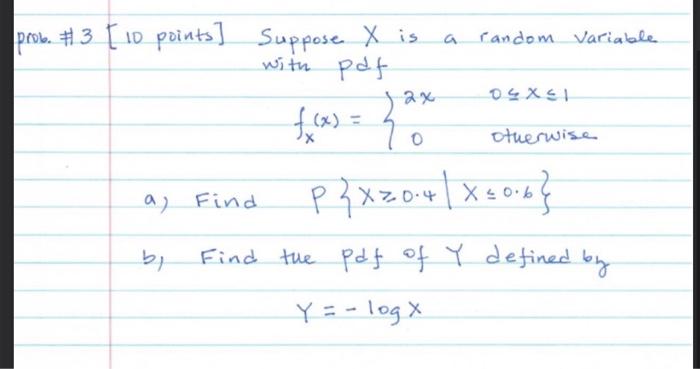 prob. #3 [10 points] Suppose X is a random variable
with pdf
fₓ(x) = { 2x 0 ≤ x ≤ 1
0 otherwise
a) Find P{X ≥ 0.4 | X ≤ 0.6}
b) Find the pdf of Y defined by
Y = - log X